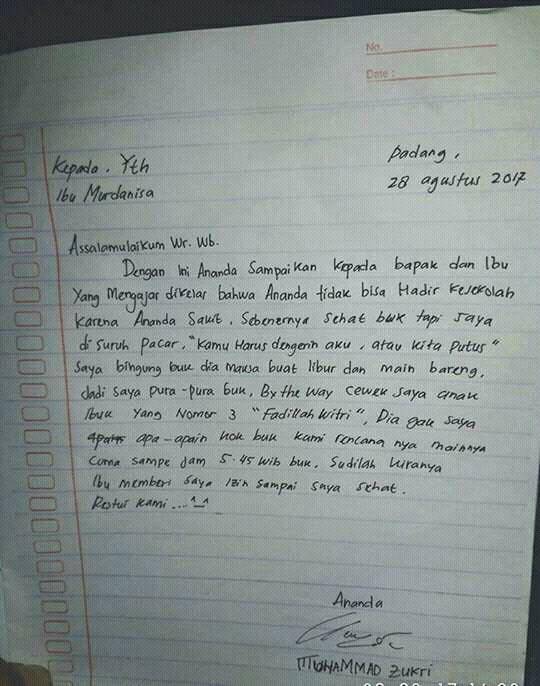 No.
Date :
Padang,
28 agustus 2017
Kepada. Yth
Ibu Murdanisa
Assalamulaikum Wr. Wb.
Dengan Ini Ananda Sampaikan Kepada bapak dan Ibu
Yang Mengajar dikelas bahwa Ananda tidak bisa Hadir Kesekolah
Karena Ananda Sakit. Sebenernya sehat buk tapi saya
di suruh pacar, "Kamu Harus dengerin aku, atau kita Putus"
Saya bingung buk dia maksa buat libur dan main bareng,
Jadi saya pura-pura buk, By the way cewek saya anak
Ibuk Yang Nomor 3 "Fadillah Witri", Dia gak saya
apa-apain kok buk kami rencana nya mainnya
Cuma sampe jam 5.45 wib buk. Sudilah kiranya
Ibu memberi saya Izin sampai saya sehat.
Restui kami...^_^
Ananda
MUHAMMAD Zukri